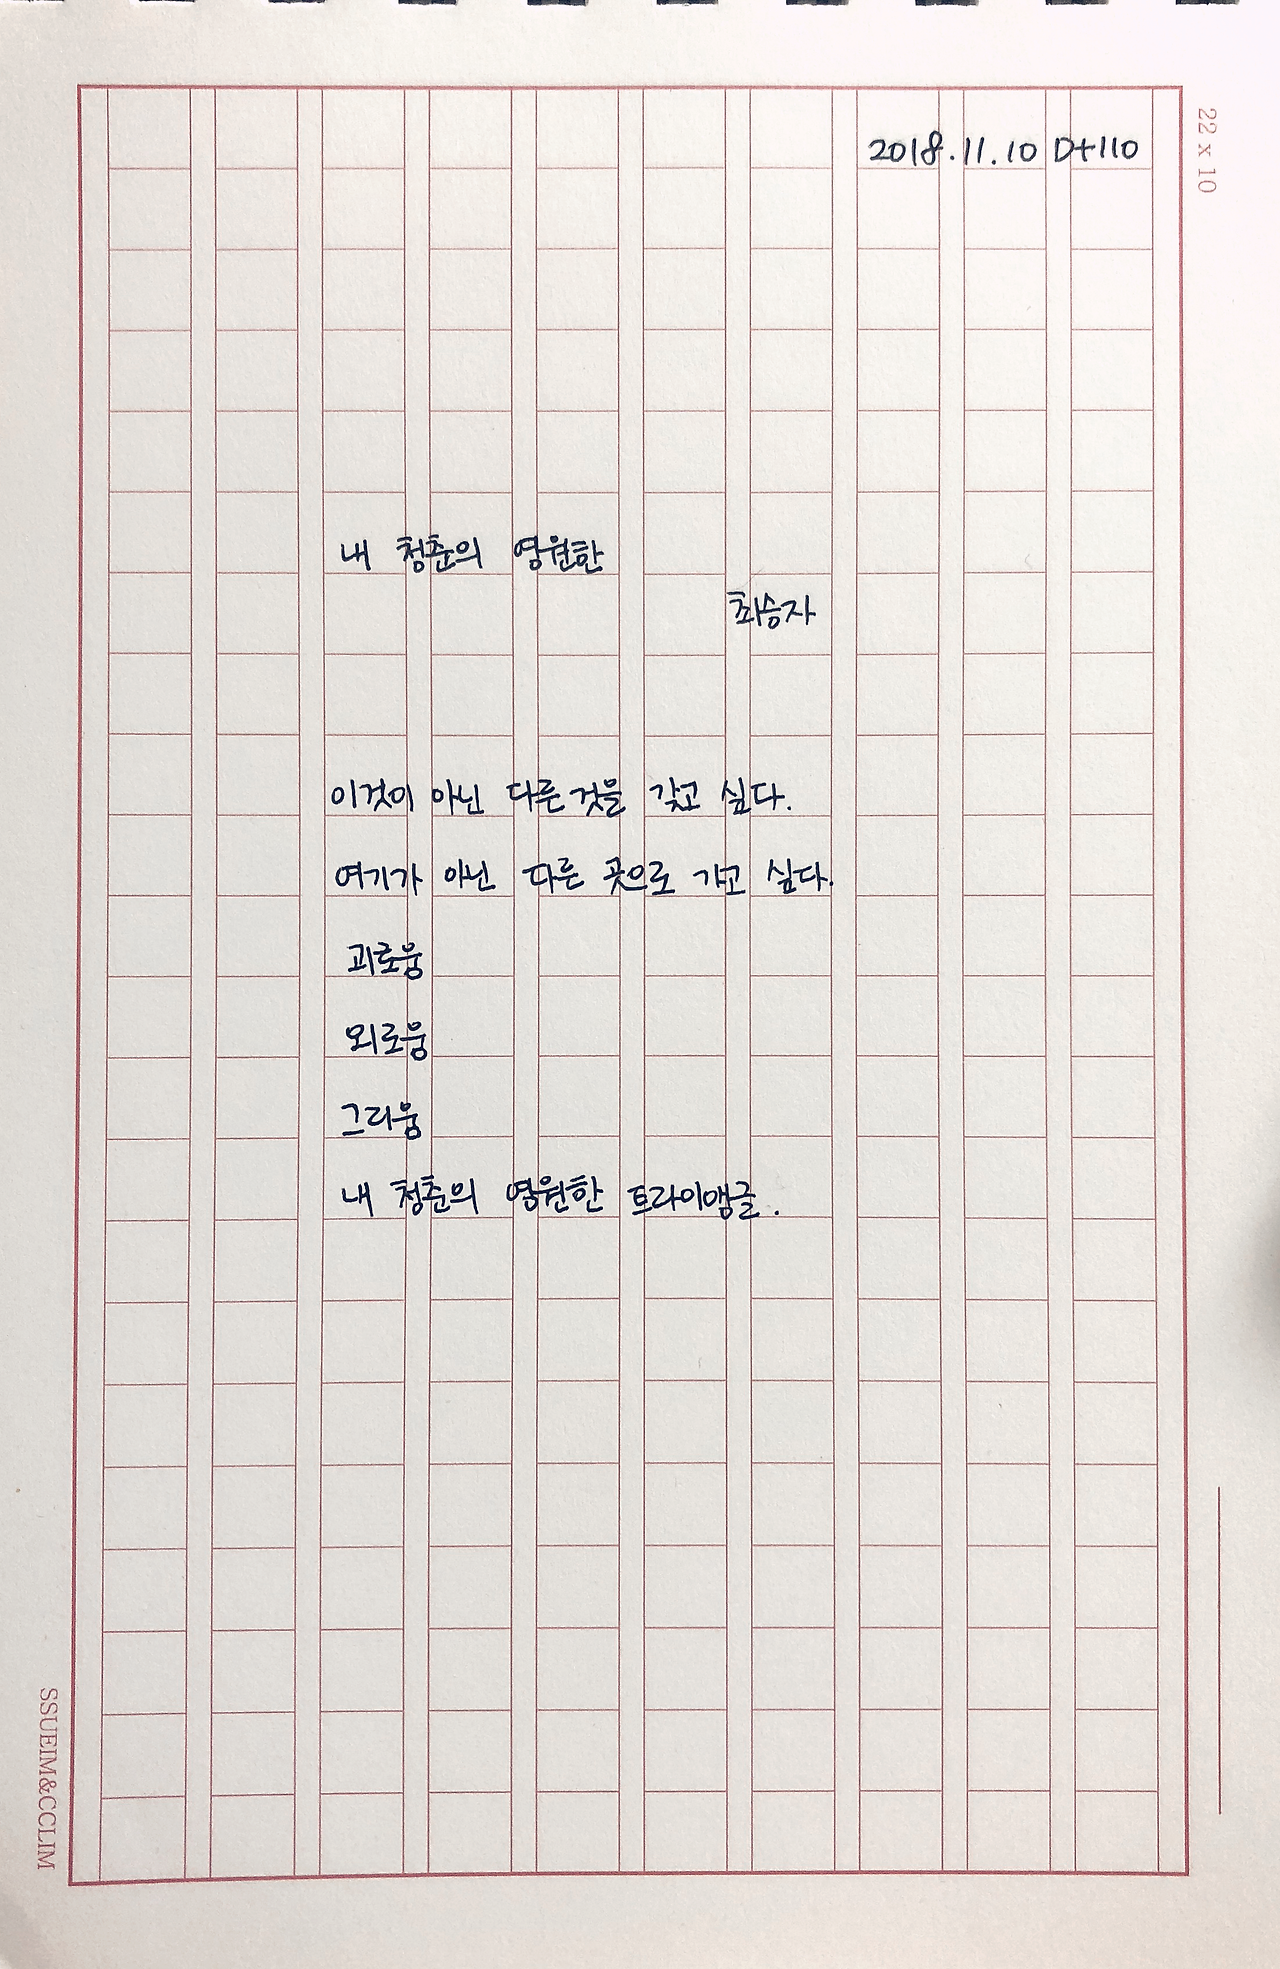 2018.11.10 D+110
22 x 10
내 청춘의 영원한
최승자
이것이 아닌 다른 것을 갖고 싶다.
여기가 아닌 다른 곳으로 가고 싶다.
괴로움
외로움
그리움
내 청춘의 영원한 트라이앵글.
SSUEIM&CCLIM